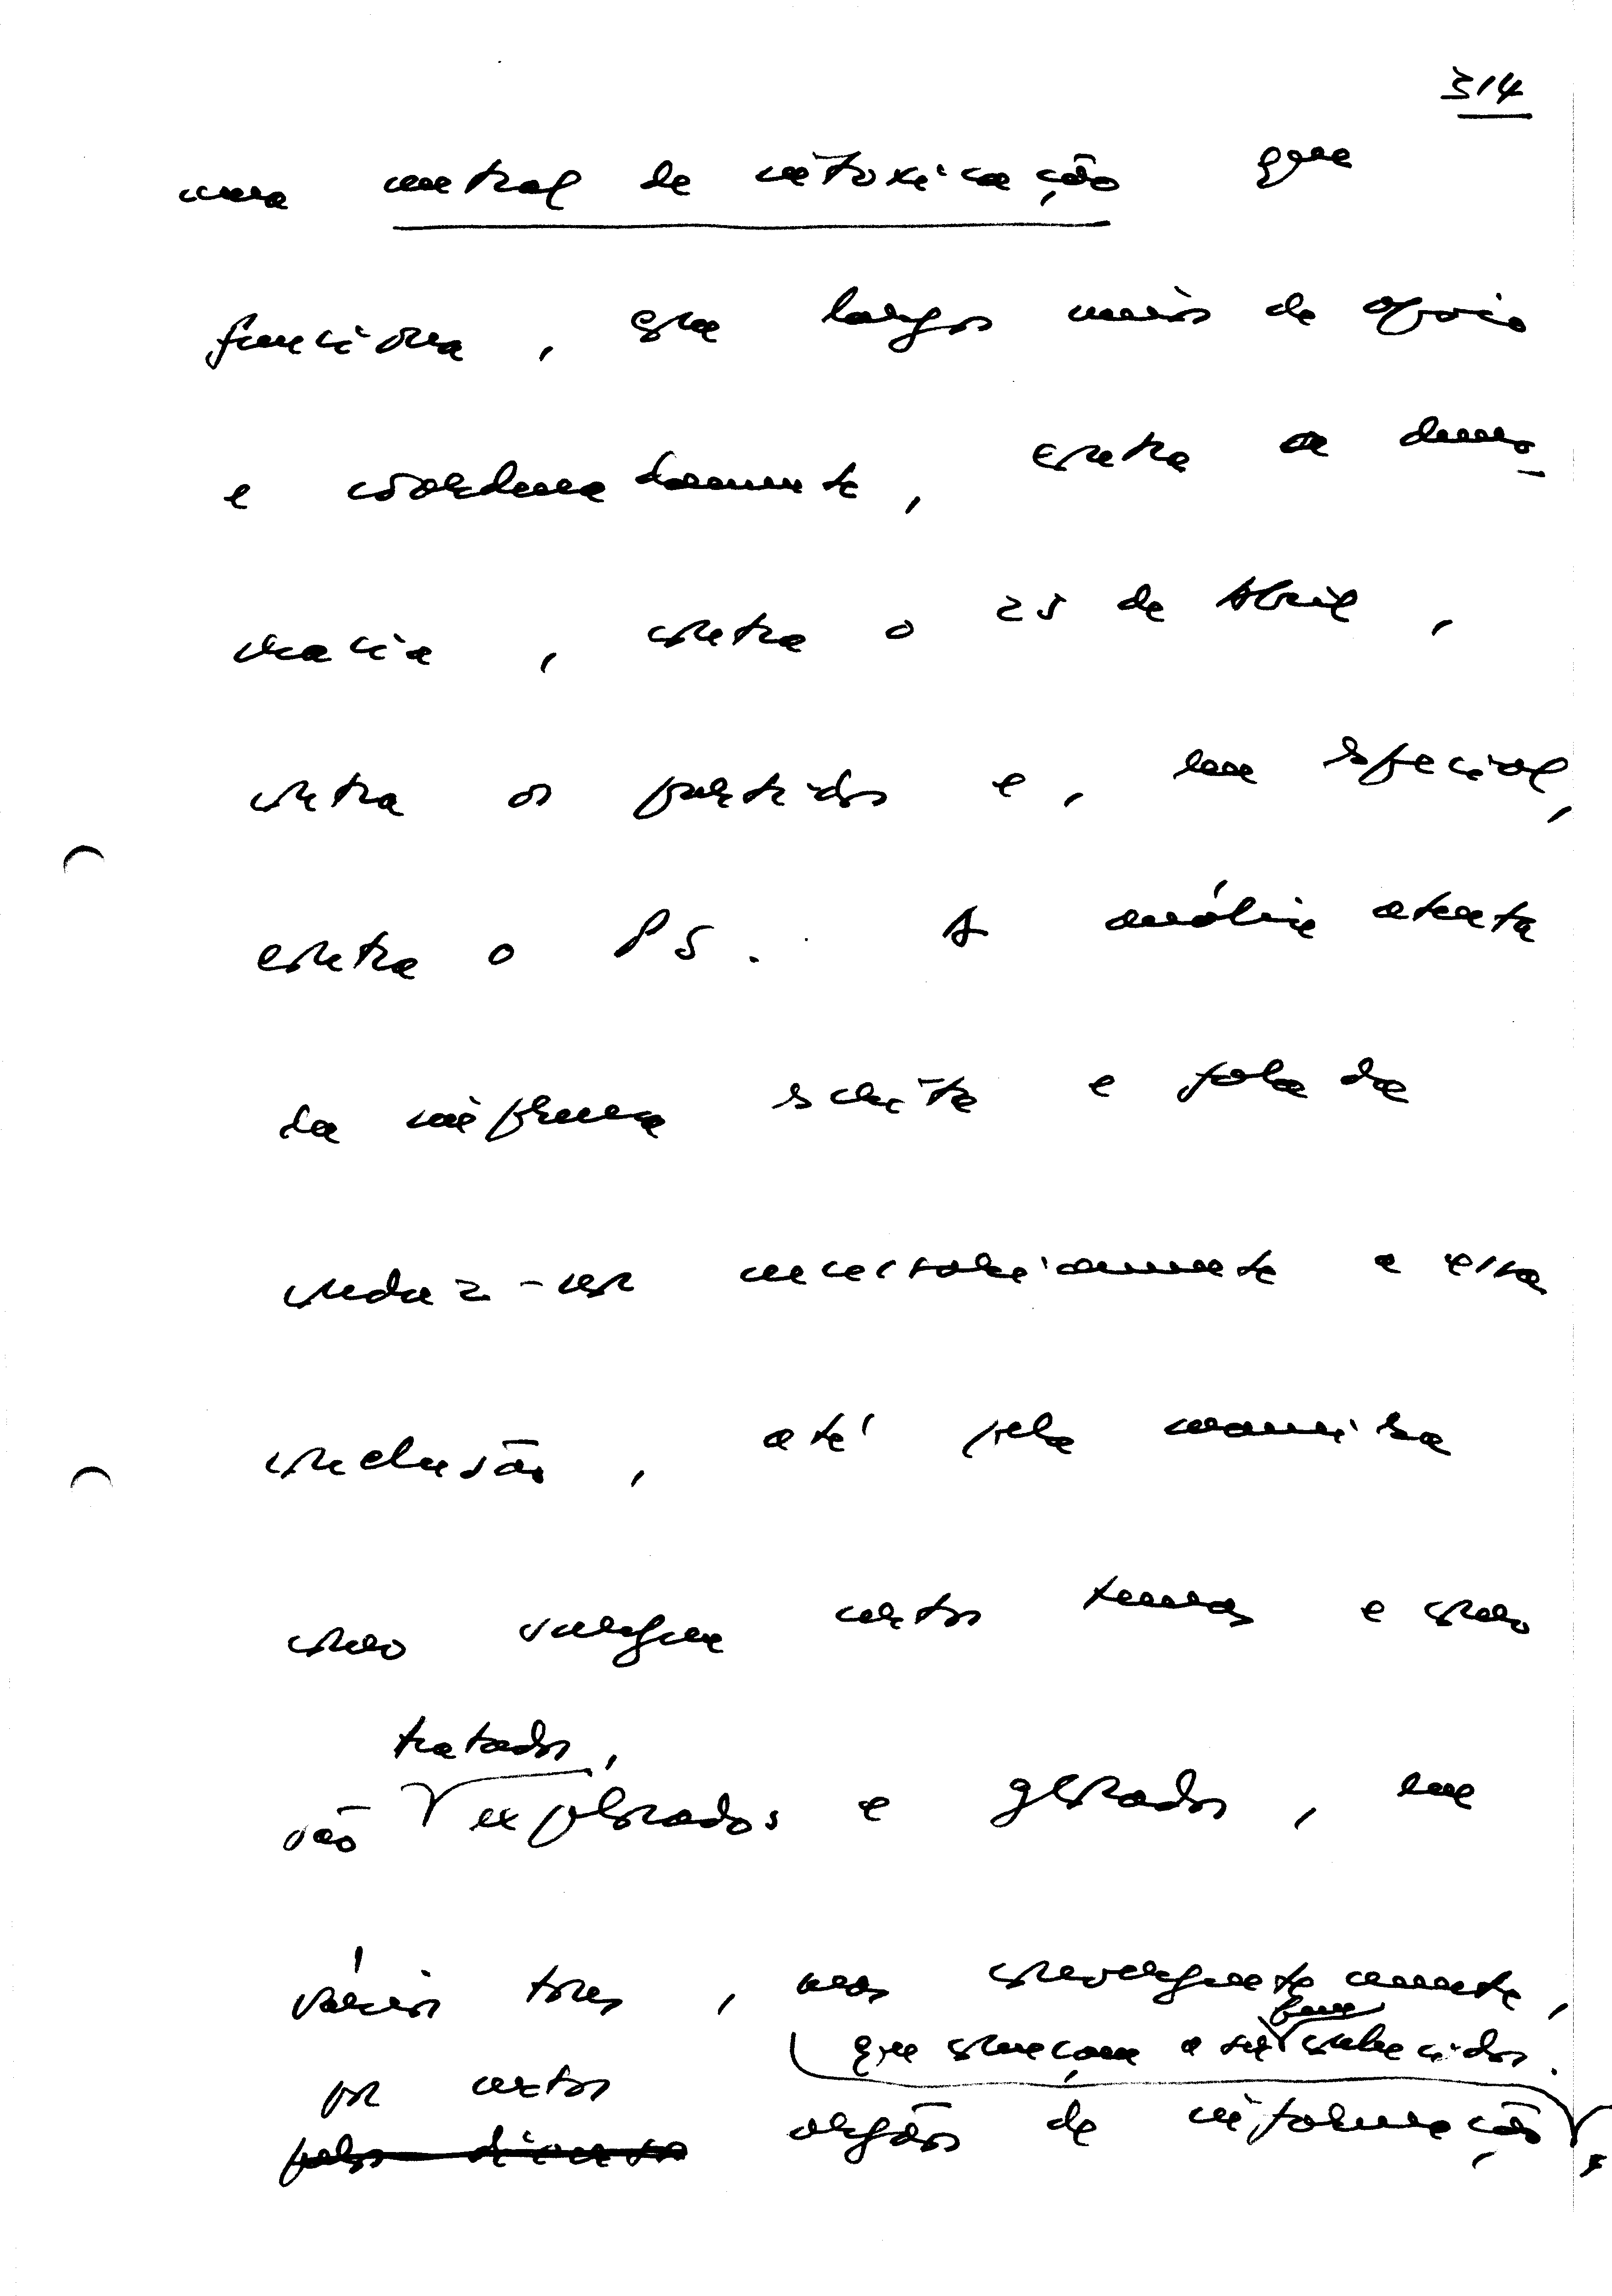 314
uma central de intoxicação que
funciona, com largos meios de apoio
e coordenadamente, contra a demo-
cracia, contra o 25 de Abril,
contra os partidos e, em especial,
contra o PS. A análise atenta
da imprensa escrita e falada
conduz-nos necessariamente a essa
conclusão, até pela maneira
como surgem certos temas e como
tratados,
são explorados e glosados, em
vários tons, mas convergentemente,
bem
que começam a ser conhecidos.
por certos
pelos diversos orgãos de informação